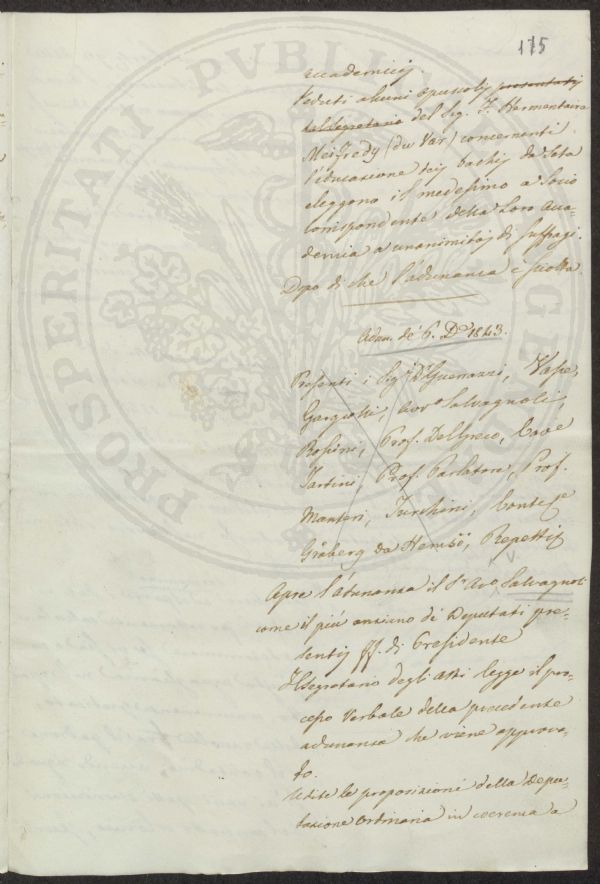 175
accademici
Veduti alcuni opuscoli presentati
dal Segretario del Sig. F. Hermentaire
Meifredy (du Var) concernenti
l'educazione dei bachi da Seta
eleggono il medesimo a Socio
Corrispondente della Loro Acca-
demia a unanimità di suffragi.
Dopo di che l'adunanza è sciolta.
Adun. de' 6. Dre 1843.
Presenti i Sigri Dr Guerrazzi,
Gargiolli, Avvo Salvagnoli,
Rosini, Prof. Del Greco, Cave
Tartini, Prof. Parlatore, Prof.
Manteri, Turchini, Conte
Gråberg da Hemsö, Repetti
Apre l'adunanza il Sr Avvo Salvagnoli
come il più anziano de' Deputati pre-
senti ff. di Presidente
Il Segretario degli Atti legge il pro-
cesso Verbale della precedente
adunanza che viene approva-
to.
Udite le proposizioni della Depu-
tazione Ordinaria in coerenza a
PROSPERITATI PVBLICAE AVGENDAE